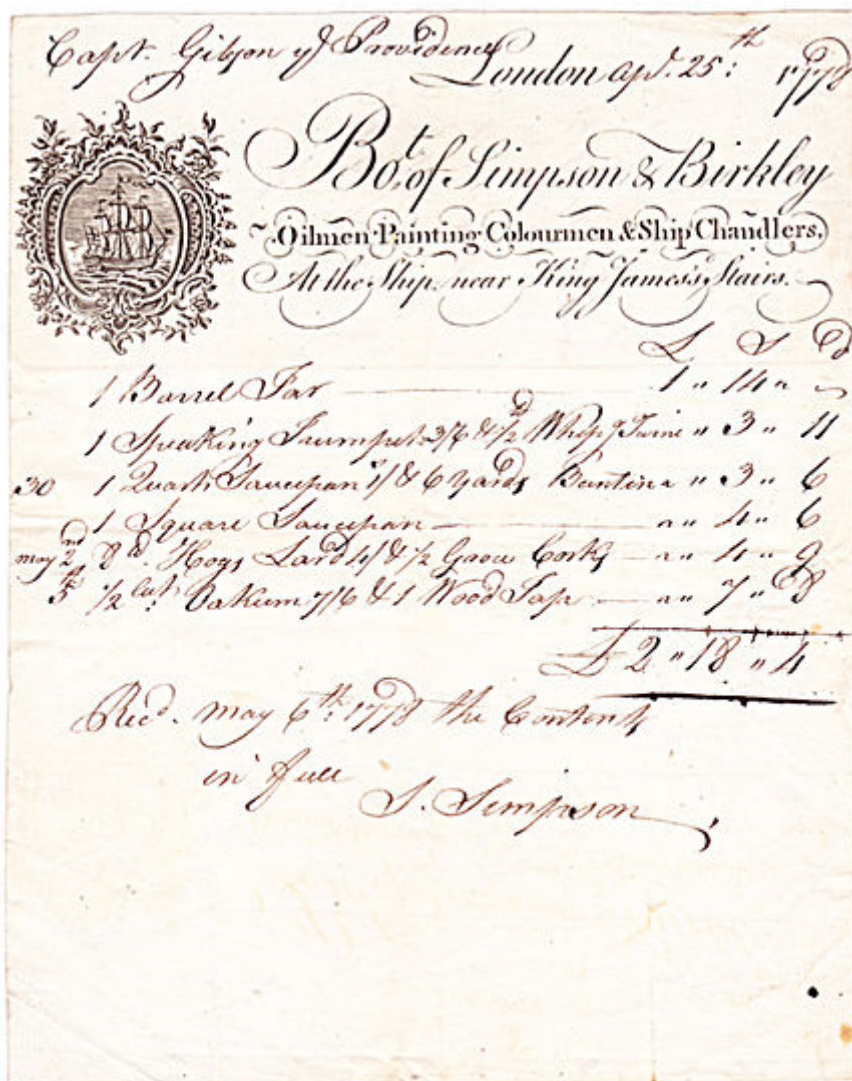 Capt. Gibson of Providence
London apl. 25:th 1778
Bot. of Simpson & Birkley
Oilmen Painting Colourmen & Ship Chandlers.
At the Ship, near King James's Stairs.
£ S d
1 Barrel Tar 1 " 14 "
1 Speaking Trumpet 3/6 & 1/2 d Whip.g Twine " 3 " 11
30 1 Quart Saucepan 1/ & 6 Yards Buntin " " 3 " 6
1 Square Saucepan " " 4 " 6
may 2nd 8 d. Hogs Lard 4/ & 1/2 Groce Corks " " 4 " 9
5th 1/2 Cwt: Oakum 7/6 & 1 Wood Tap " " 7 " 8
£ 2 " 18 " 4
Recd. may 6th: 1778 the Contents
in full
S. Simpson